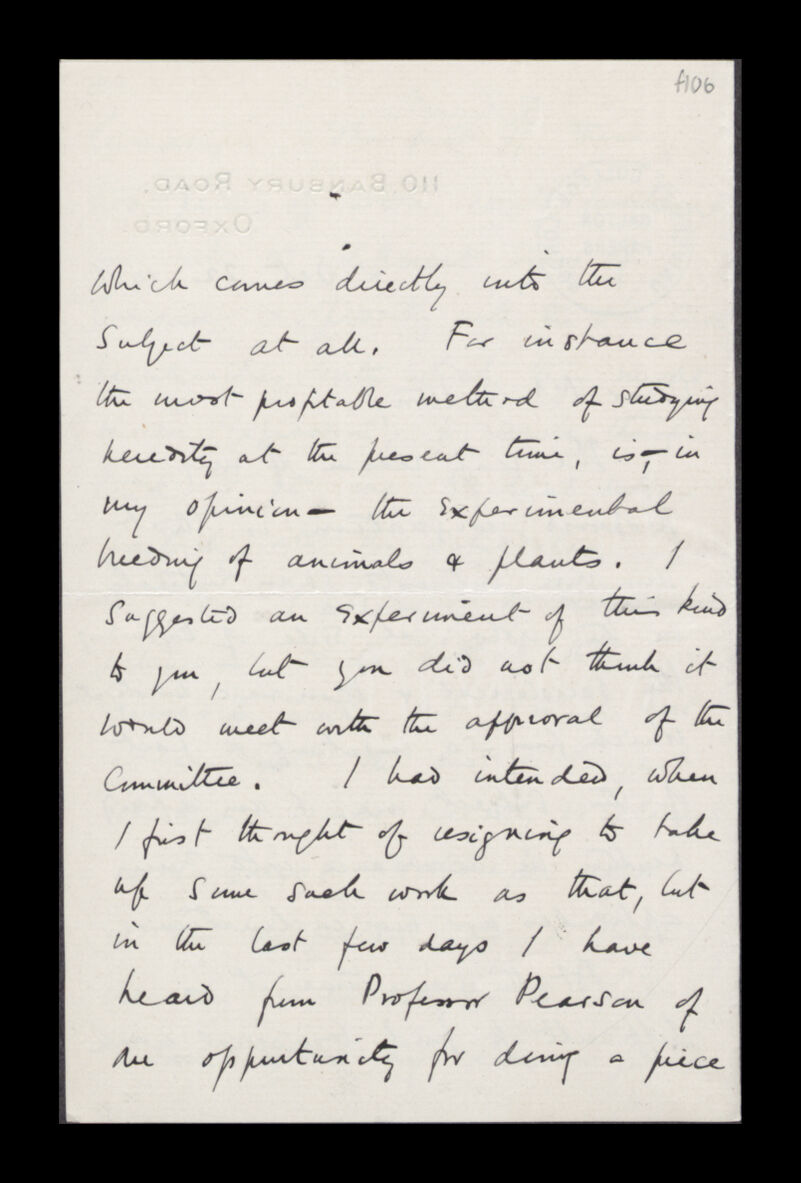 f106
110, BANBURY ROAD,
OXFORD.
which comes directly into the
subject at all. For instance
the most profitable method of studying
heredity at the present time, is, – in
my opinion – the experimental
breeding of animals & plants. I
suggested an experiment of this kind
to you, but you did not think it
would meet with the approval of the
Committee. I had intended, when
I first thought of resigning to take
up some such work as that, but
in the last few days I have
heard from Professor Pearson of
an opportunity for doing a piece